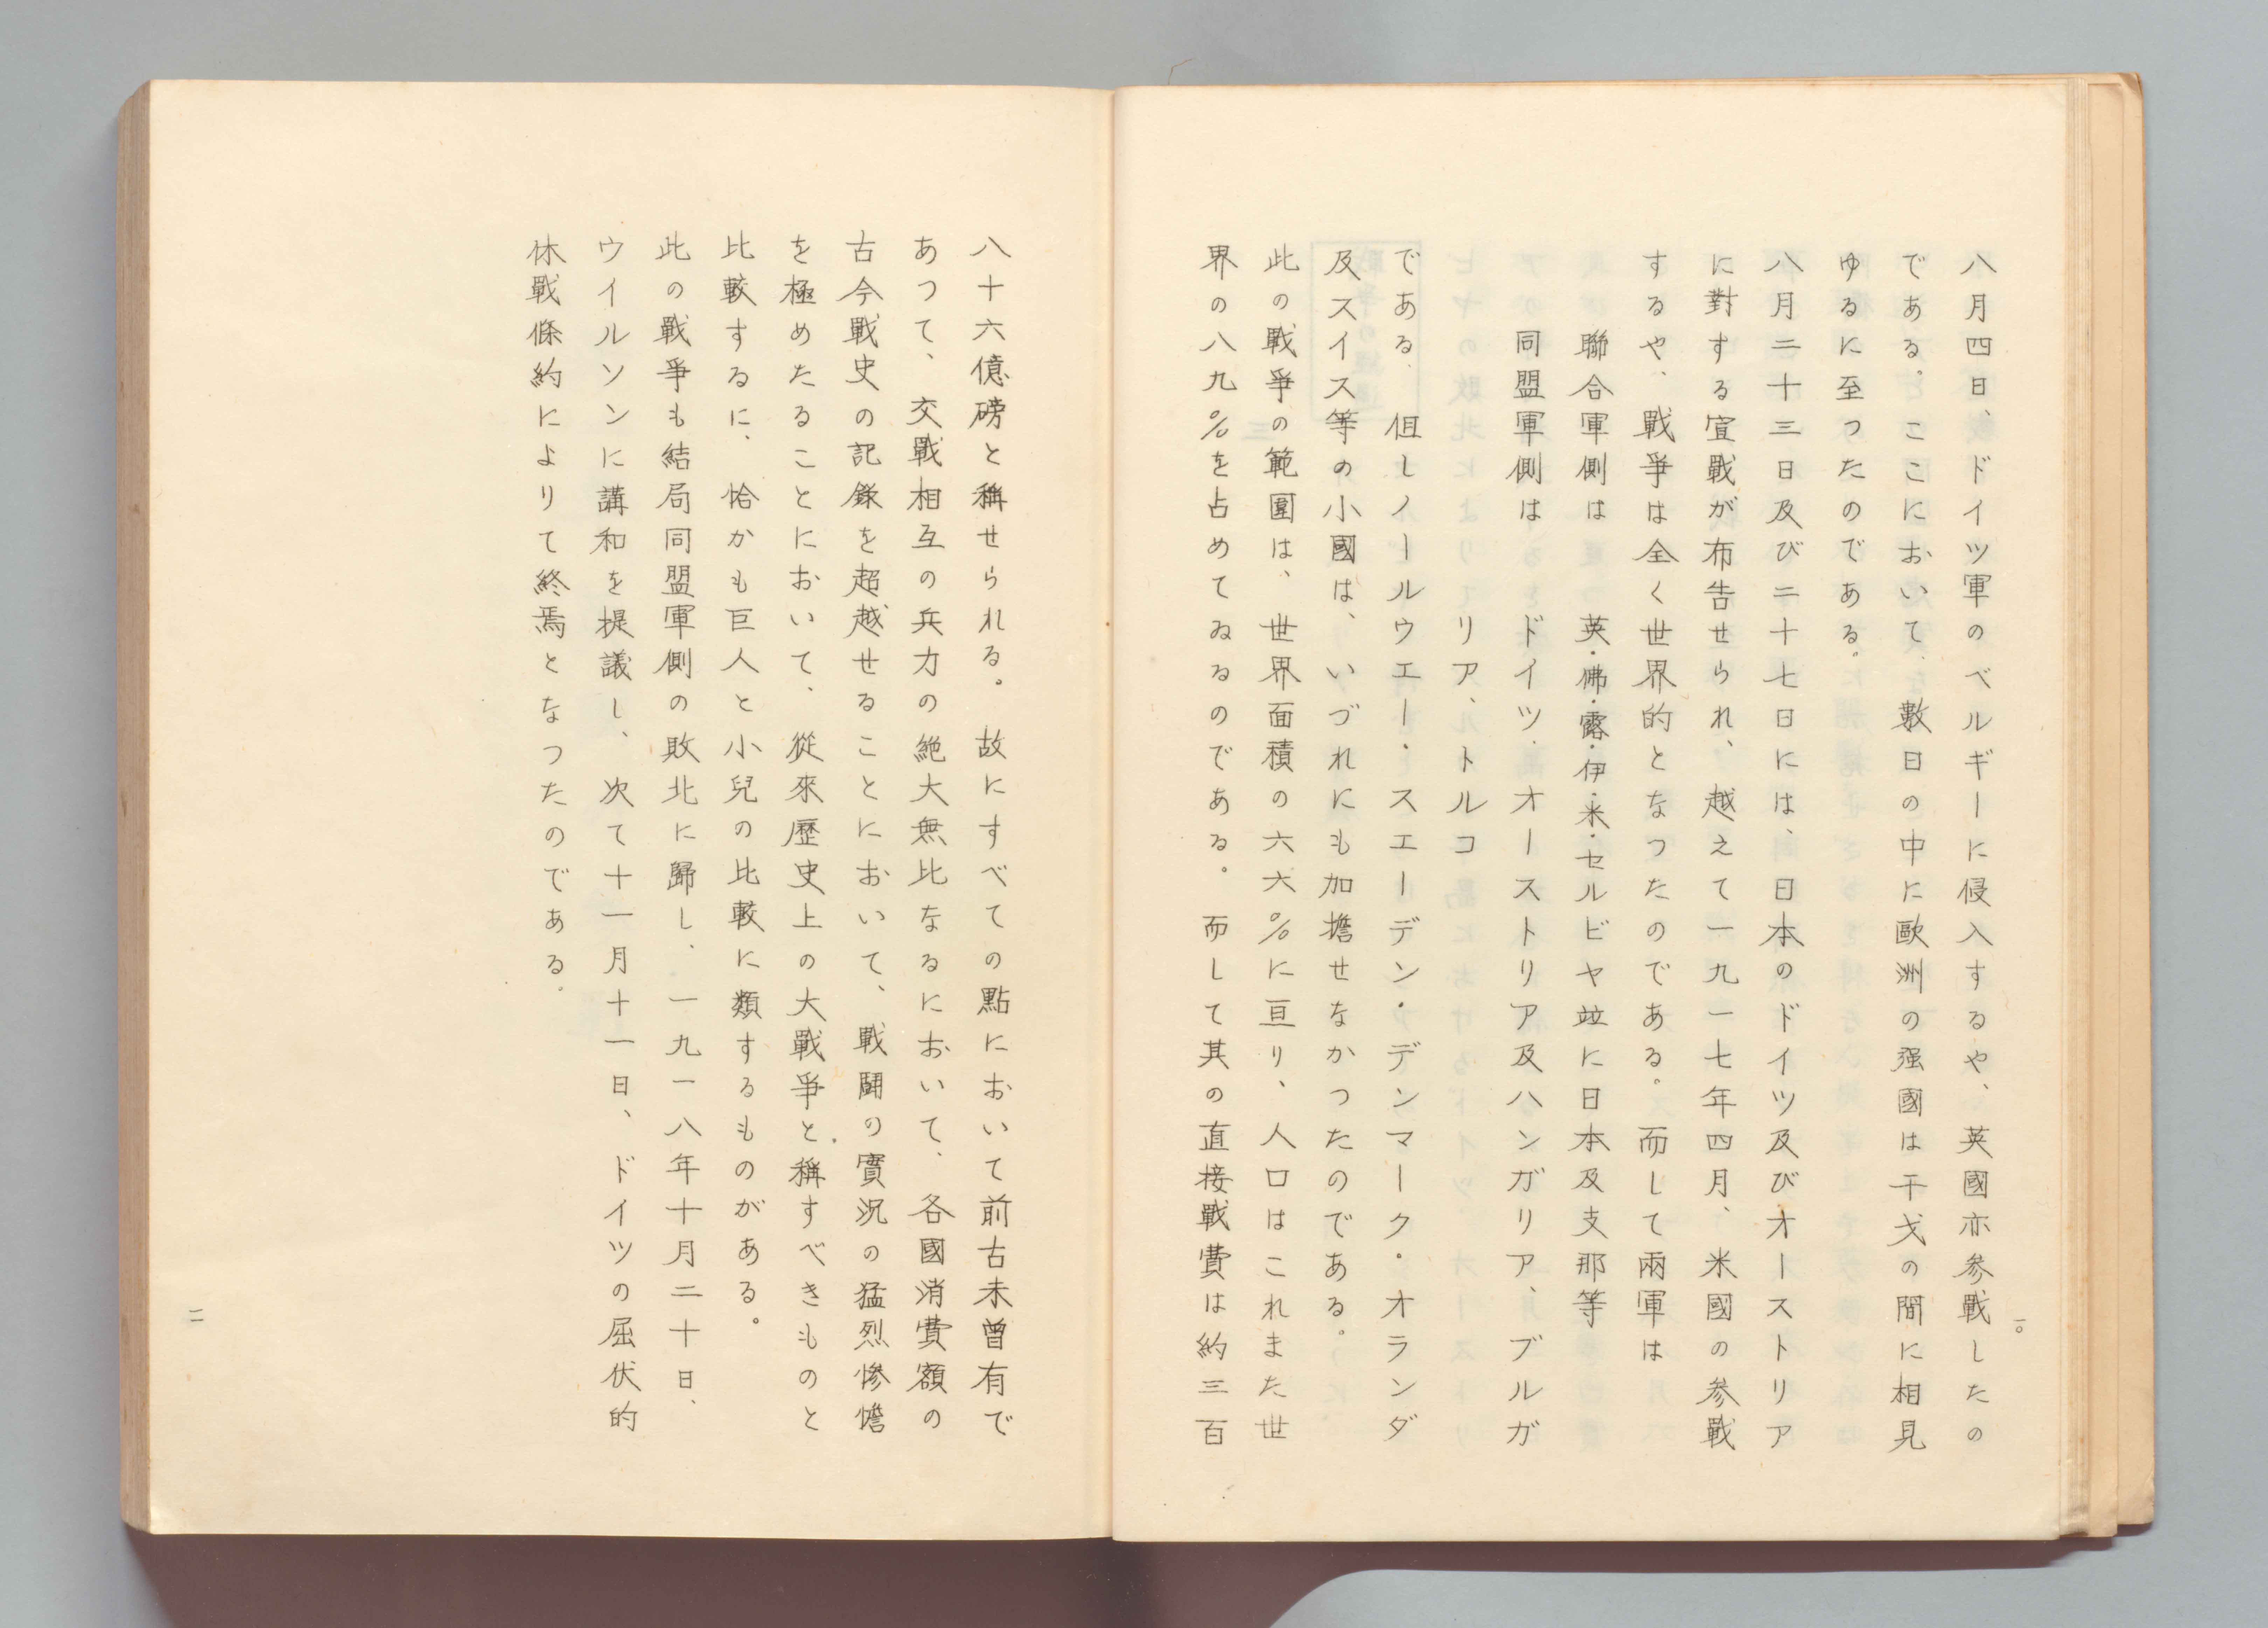 八月四日、ドイツ軍のベルギーに侵入するや、英國亦参戰したの
である。ここにおいて、數日の中に歐洲の强國は干戈の間に相見
ゆるに至つたのである。
八月二十三日及び二十七日には、日本のドイツ及びオーストリア
に對する宣戰が布告せられ、越えて一九一七年四月、米國の参戰
するや、戰爭は全く世界的となつたのである。而して兩軍は
聯合軍側は　英・佛・露・伊・米・セルビヤ竝に日本及支那等
同盟軍側は　ドイツ、オーストリア及ハンガリア、ブルガ
リア、トルコ
である。但しノールウエー・スエーデン・デンマーク・オランダ
及スイス等の小國は、いづれにも加擔せなかつたのである。
此の戰爭の範圍は、世界面積の六六%に亘り、人口はこれまた世
界の八九%を占めてゐるのである。而して其の直接戰費は約三百
一〇
八十六億磅と稱せられる。故にすべての點において前古未曾有で
あつて、交戰相互の兵力の絶大無比なるにおいて、各國消費額の
古今戰史の記錄を超越せることにおいて、戰鬪の實況の猛烈慘憺
を極めたることにおいて、從來歷史上の大戰爭と稱すべきものと
比較するに、恰かも巨人と小兒の比較に類するものがある。
此の戰爭も結局同盟軍側の敗北に歸し、一九一八年十月二十日、
ウイルソンに講和を提議し、次て十一月十一日、ドイツの屈伏的
休戰條約によりて終焉となつたのである。
一一